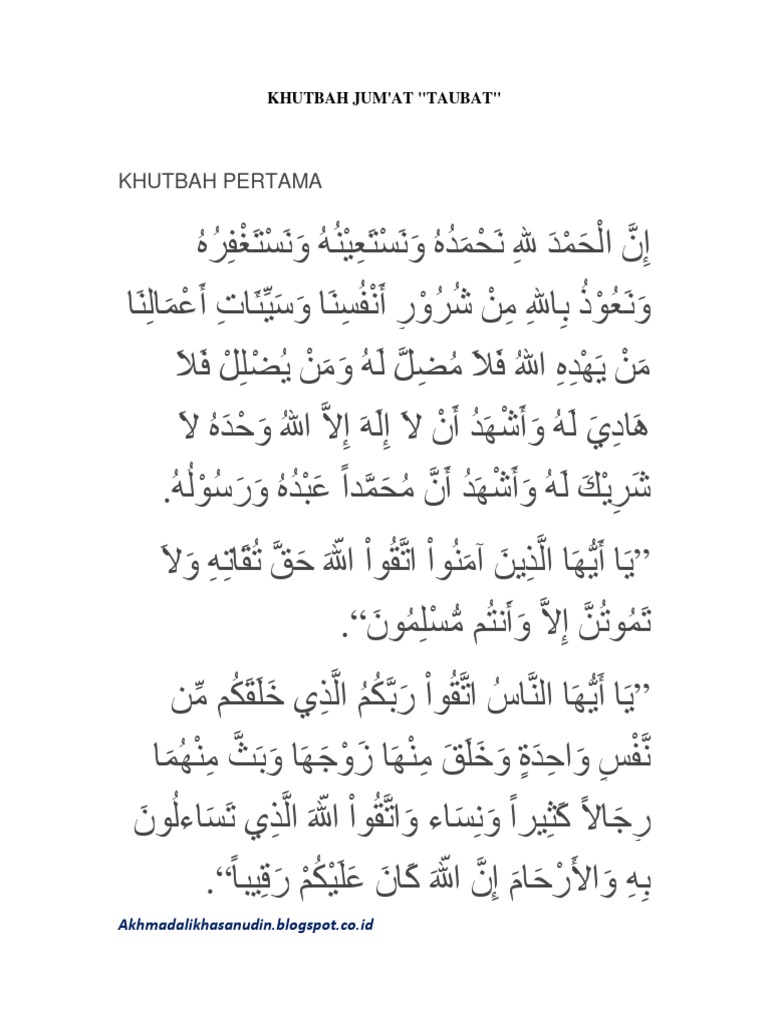 KHUTBAH JUM'AT "TAUBAT"
KHUTBAH PERTAMA
إِنَّ الْحَمْدَ لِلهِ نَحْمَدُهُ وَنَسْتَعِيْنُهُ وَنَسْتَغْفِرُهُ
وَنَعُوْذُ بِاللهِ مِنْ شُرُوْرِ أَنْفُسِنَا وَسَيِّئَاتِ أَعْمَالِنَا
مَنْ يَهْدِهِ اللهُ فَلاَ مُضِلَّ لَهُ وَمَنْ يُضْلِلْ فَلاَ
هَادِيَ لَهُ وَأَشْهَدُ أَنْ لاَ إِلَهَ إِلاَّ اللهُ وَحْدَهُ لاَ
شَرِيْكَ لَهُ وَأَشْهَدُ أَنَّ مُحَمَّداً عَبْدُهُ وَرَسُوْلُهُ.
”يَا أَيُّهَا الَّذِينَ آمَنُواْ اتَّقُواْ اللّهَ حَقَّ تُقَاتِهِ وَلاَ
تَمُوتُنَّ إِلاَّ وَأَنتُم مُّسْلِمُونَ“.
”يَا أَيُّهَا النَّاسُ اتَّقُواْ رَبَّكُمُ الَّذِي خَلَقَكُم مِّن
نَّفْسٍ وَاحِدَةٍ وَخَلَقَ مِنْهَا زَوْجَهَا وَبَثَّ مِنْهُمَا
رِجَالاً كَثِيراً وَنِسَاء وَاتَّقُواْ اللّهَ الَّذِي تَسَاءلُونَ
بِهِ وَالأَرْحَامَ إِنَّ اللّهَ كَانَ عَلَيْكُمْ رَقِيباً“.
Akhmadalikhasanudin.blogspot.co.id